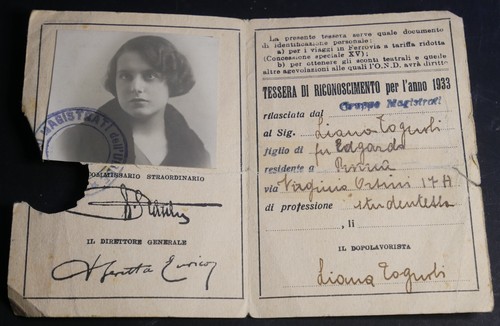 MAGISTRATI dell'U
COMMISSARIO STRAORDINARIO
IL DIRETTORE GENERALE
La presente tessera serve quale documento
di identificazione personale:
a) per i viaggi in Ferrovia a tariffa ridotta
(Concessione speciale XV);
b) per ottenere gli sconti teatrali e quelle
altre agevolazioni alle quali l'O.N.D. avrà diritto
TESSERA DI RICONOSCIMENTO per l'anno 1933
rilasciata dal Gruppo Magistrati
al Sig. Liana
figlio di fu Edgardo
residente a Roma
via Virginio Orsini 17 A
di professione studentessa
, li
IL DOPOLAVORISTA
Liana